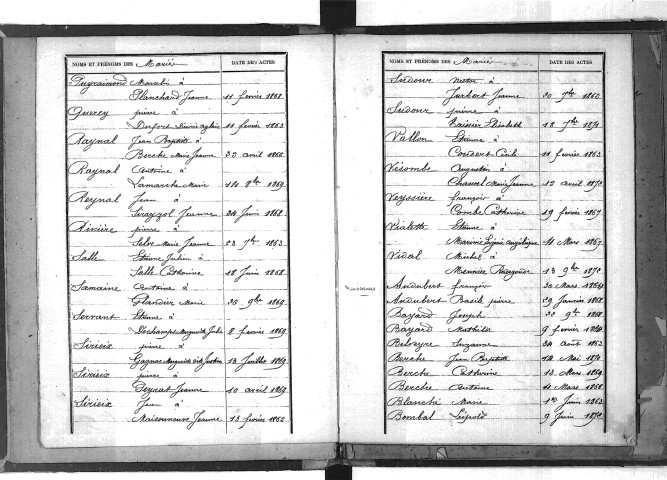 NOMS ET PRÉNOMS DES Mariés DATE DES ACTES
Puyraimond Marcelin à
Planchard Jeanne 11 février 1868
Quercy pierre à
Dufort 11 février 1863
Raynal Jean Baptiste à
Berche Marie Jeanne 23 avril 1866
Raynal Antoine à
Lamarche Marie 1869
Reynal Jean à
Jeanne 24 Juin 1868
Rivière pierre à
Selve Marie Jeanne 23 1863
Salle Etienne Julien à
Salle Catherine 18 Juin 1868
Samaine Antoine à
Glandier Marie 25 9bre 1869
Servant Etienne à
Deschamps Marguerite 8 février 1869
Sirieix pierre à
Gagnac Marguerite 13 Juillet 1869
Sirieix pierre à
Peyrat Jeanne 10 avril 1869
Sirieix Jean à
Maisonneuve Jeanne 13 février 1866
NOMS ET PRÉNOMS DES Mariés DATE DES ACTES
Sudour à
Jeanne 20 1860
Sudour pierre à
Elisabeth 18 1870
Vallon Etienne à
Coudert 11 février 1863
Visombe Augustin à
Marie Jeanne 13 avril 1870
Veyssière françois à
Combe Catherine 19 février 1867
Vialotte Etienne à
Angélique 4 Mars 1867
Vidal Michel à
Meunier 13 9bre 1870
Andubert françois 30 Mars 1864
Andubert Basile pierre 29 Janvier 1868
Bayard Joseph 20 9bre 1868
Bayard Mathilde 9 février 1864
Belveyre Suzanne 24 août 1863
Berche Jean Baptiste 14 Mai 1870
Berche Catherine 13 Mars 1869
Berche Antoine 4 Mars 1868
Blanché Marie 1er Juin 1863
Bombal Léopold 9 Juin 1870